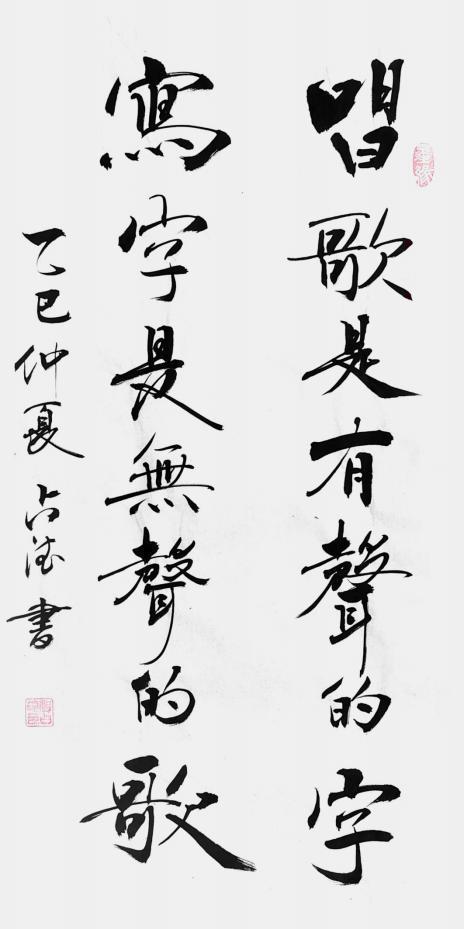 唱歌是有聲的字
寫字是無聲的歌
乙巳仲夏 占波書